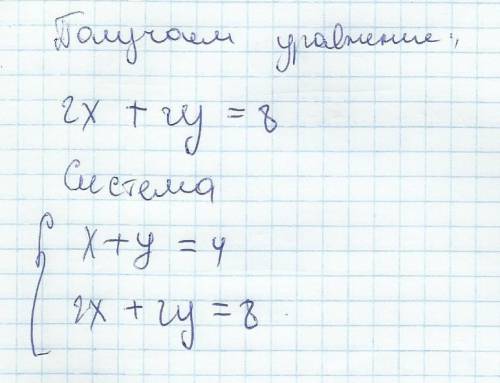 Получаем уравнение:
2x + 2y = 8
Система
x + y = 4
2x + 2y = 8